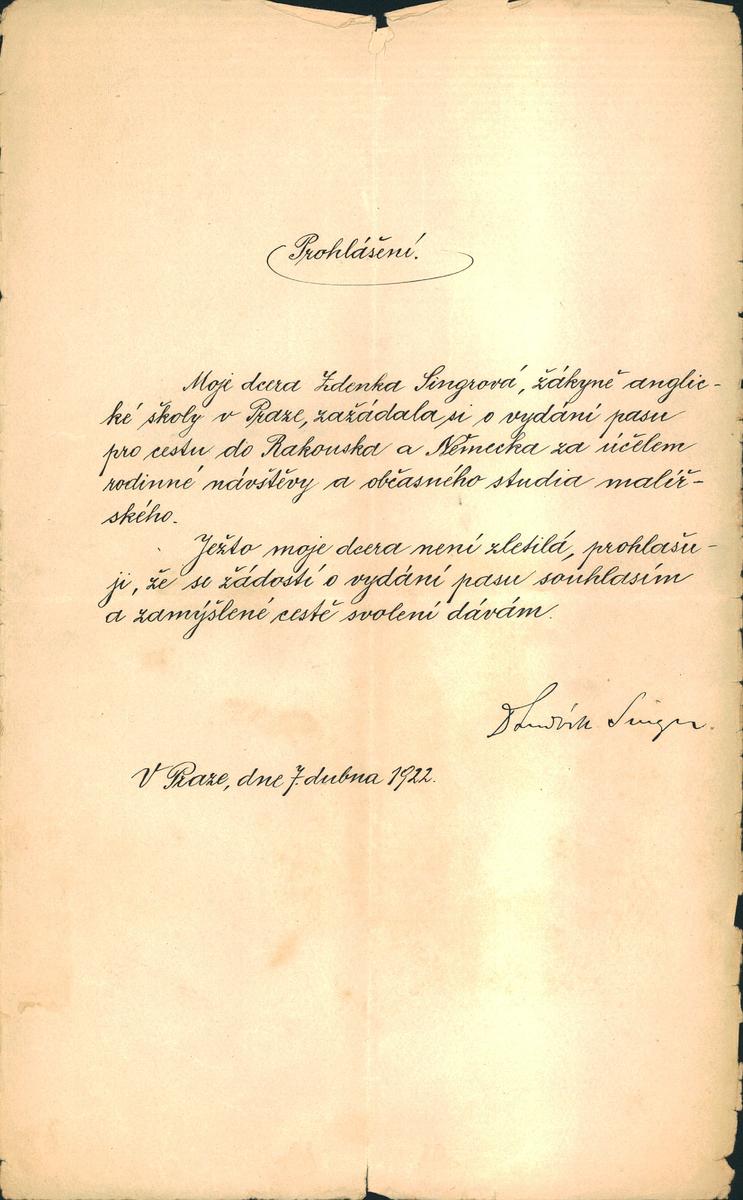 Prohlášení.
Moje dcera Zdenka Singrová, žákyně anglic-
ké školy v Praze, zažádala si o vydání pasu
pro cestu do Rakouska a Německa za účelem
rodinné návštěvy a občasného studia malíř-
ského.
Ježto moje dcera není zletilá, prohlašu-
ji, že se žádostí o vydání pasu souhlasím
a zamýšlené cestě svolení dávám.
Dr Ludvík Singer.
V Praze, dne 7. dubna 1922.